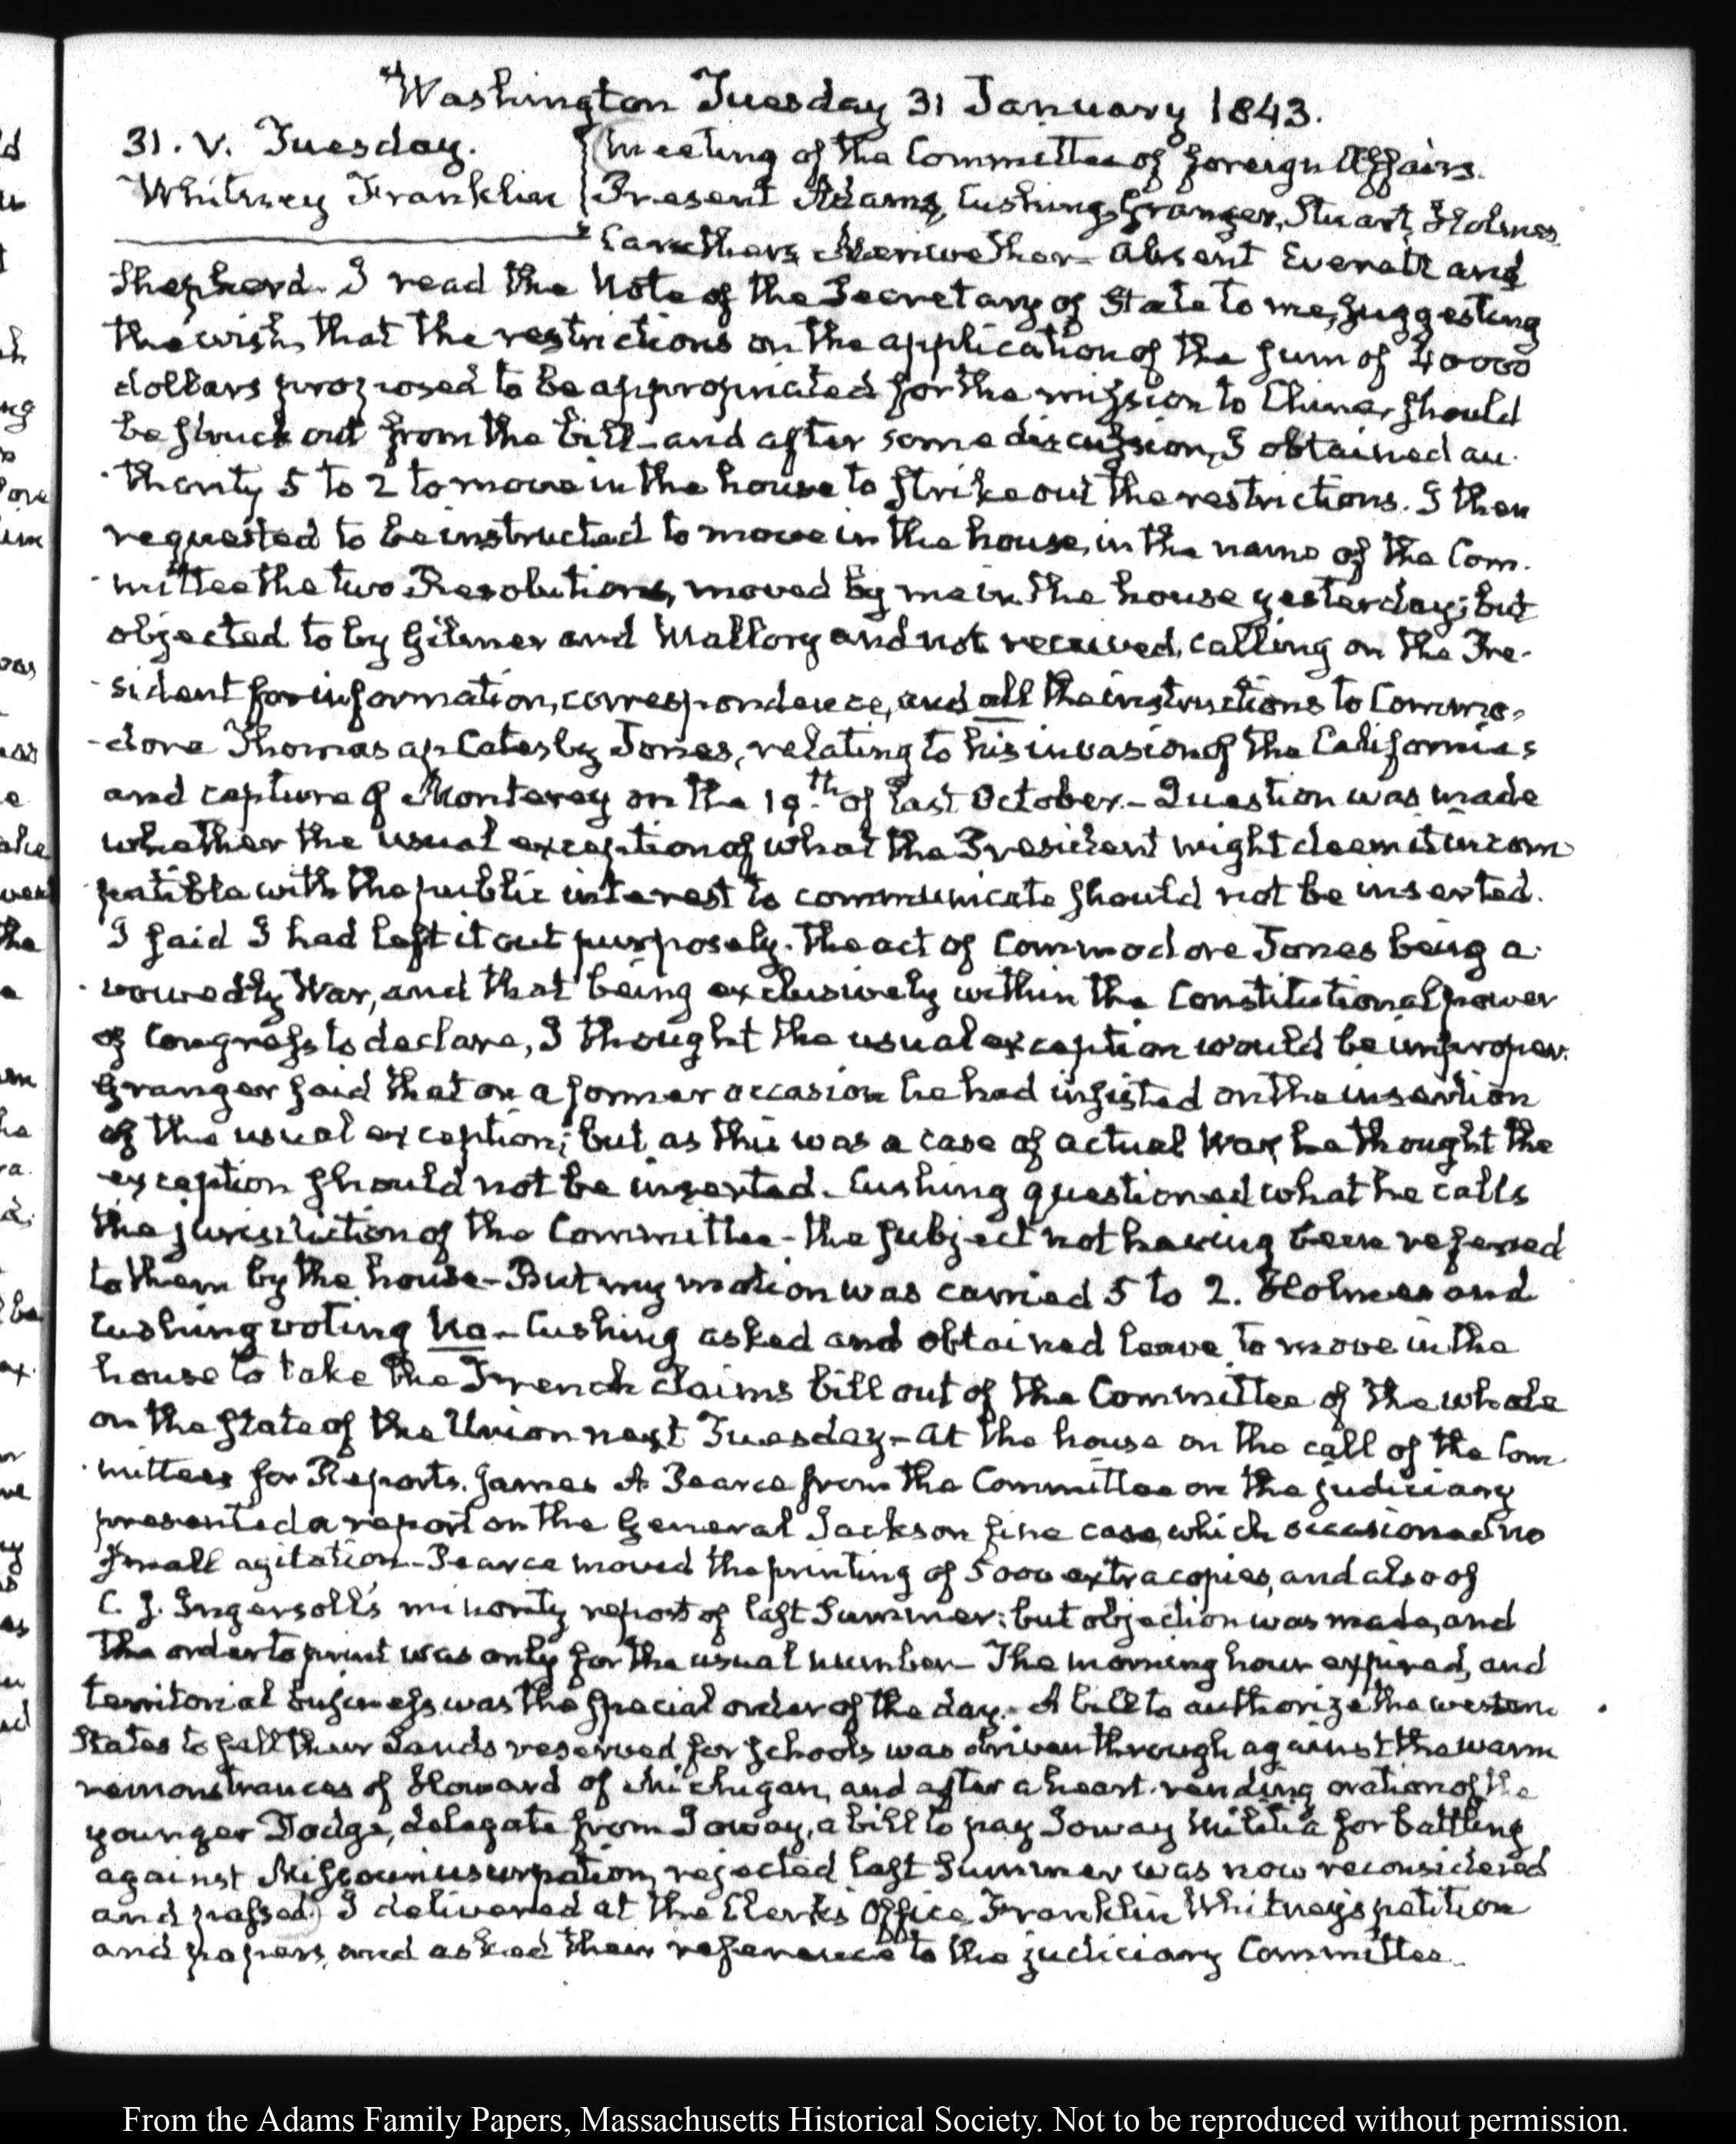 Washington Tuesday 31 January 1843.
31. V. Tuesday.
Whitney Franklin
Meeting of the Committee of foreign Affairs.
Present Adams, Cushing, Granger, Stuart, Holmes
Caruthers Meriwether – absent Everett and
Shepperd. I read the Note of the Secretary of State to me, suggesting
the wish, that the restrictions on the application of the sum of 40000
dollars proposed to be appropriated for the mission to China, should
be struck out from the bill – and after some discussion, I obtained au-
-thority 5 to 2 to move in the house to strike out the restrictions. I then
requested to be instructed to move in the house, in the name of the Com-
-mittee the two Resolutions, moved by me in the house yesterday; but
objected to by Gilmer and Mallory and not received, calling on the Pre-
-sident for information, correspondence, and all the instructions to Commo-
-dore Thomas ap Catesby Jones, relating to his invasion of the Californias
and capture of Monterey on the 19.th of last October. – Question was made
whether the usual exception of what the President might deem it incom
patible with the public interest to communicate should not be inserted.
I said I had left it out purposely. The act of Commodore Jones being a-
-vowedly War, and that being exclusively within the Constitutional power
of Congress to declare, I thought the usual exception would be improper.
Granger said that on a former occasion he had insisted on the insertion
of the usual exception; but as this was a case of actual War, he thought the
exception should not be inserted – Cushing questioned what he calls
the jurisdiction of the Committee – the subject not having been referred
to them by the house – But my motion was carried 5 to 2. Holmes and
Cushing voting No – Cushing asked and obtained leave to move in the
house to take the French claims bill out of the Committee of the whole
on the state of the Union next Tuesday – At the house on the call of the Com-
-mittees for Reports. James A Pearce from the Committee on the judiciary
presented a report on the General Jackson fine case, which occasioned no
small agitation – Pearce moved the printing of 5000 extra copies, and also of
C. J. Ingersoll's minority report of last Summer: but objection was made, and
the order to print was only for the usual number – The morning hour expired, and
territorial business was the special order of the day. – A bill to authorize the western
States to sell their Lands reserved for schools was driven through against the warm
remonstrances of Howard of Michigan, and after a heart-rending oration of the
younger Dodge, delegate from Ioway, a bill to pay Ioway Militia for battling
against Missouri usurpation, rejected last summer was now reconsidered
and passed. I delivered at the Clerk's Office, Franklin Whitney's petition
and papers, and asked their reference to the judiciary Committee.
From the Adams Family Papers, Massachusetts Historical Society. Not to be reproduced without permission.